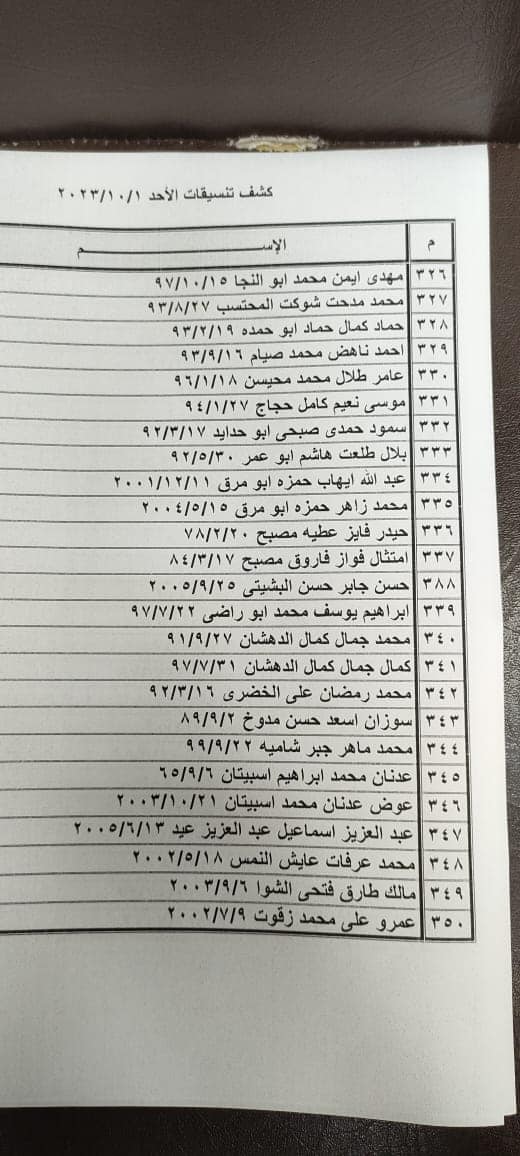 كشف تنسيقات الأحد ٢٠٢٣/١٠/١
م الإســـــــــم
٣٢٦ مهدى ايمن محمد ابو النجا ٩٧/١٠/١٥
٣٢٧ محمد مدحت شوكت المحتسب ٩٣/٨/٢٧
٣٢٨ حماد كمال حماد ابو حمده ٩٣/٢/١٩
٣٢٩ احمد ناهض محمد صيام ٩٣/٩/١٦
٣٣٠ عامر طلال محمد محيسن ٩٦/١/١٨
٣٣١ موسى نعيم كامل حجاج ٩٤/١/٢٧
٣٣٢ سمود حمدى صبحى ابو حدايد ٩٢/٣/١٧
٣٣٣ بلال طلعت هاشم ابو عمر ٩٢/٥/٣٠
٣٣٤ عبد الله ايهاب حمزه ابو مرق ٢٠٠١/١٢/١١
٣٣٥ محمد زاهر حمزه ابو مرق ٢٠٠٤/٥/١٥
٣٣٦ حيدر فايز عطيه مصبح ٧٨/٢/٢٠
٣٣٧ امتثال فواز فاروق مصبح ٨٤/٣/١٧
٣٨٨ حسن جابر حسن البشيتى ٢٠٠٥/٩/٢٥
٣٣٩ ابراهيم يوسف محمد ابو راضى ٩٧/٧/٢٢
٣٤٠ محمد جمال كمال الدهشان ٩١/٩/٢٧
٣٤١ كمال جمال كمال الدهشان ٩٧/٧/٣١
٣٤٢ محمد رمضان على الخضرى ٩٢/٣/١٦
٣٤٣ سوزان اسعد حسن مدوخ ٨٩/٩/٢
٣٤٤ محمد ماهر جبر شاميه ٩٩/٩/٢٢
٣٤٥ عدنان محمد ابراهيم اسبيتان ٦٥/٩/٦
٣٤٦ عوض عدنان محمد اسبيتان ٢٠٠٣/١٠/٢١
٣٤٧ عبد العزيز اسماعيل عبد العزيز عيد ٢٠٠٥/٦/١٣
٣٤٨ محمد عرفات عايش النمس ٢٠٠٢/٥/١٨
٣٤٩ مالك طارق فتحى الشوا ٢٠٠٣/٩/٦
٣٥٠ عمرو على محمد زقوت ٢٠٠٢/٧/٩